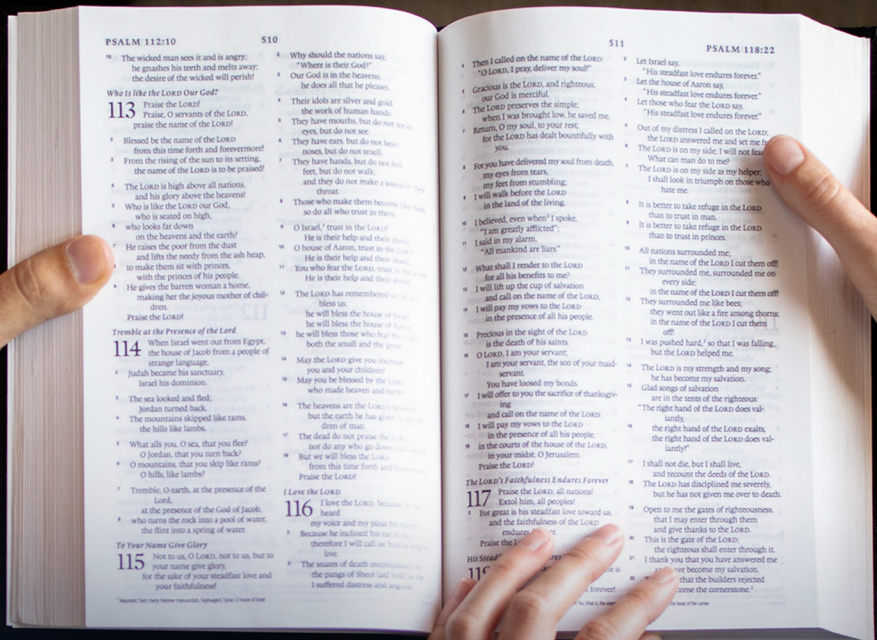 PSALM 112:10
510
10 The wicked man sees it and is angry;
he gnashes his teeth and melts away;
the desire of the wicked will perish!
Who Is like the LORD Our God?
113 Praise the LORD!
Praise, O servants of the LORD,
praise the name of the LORD!
2 Blessed be the name of the LORD
from this time forth and forevermore!
3 From the rising of the sun to its setting,
the name of the LORD is to be praised!
4 The LORD is high above all nations,
and his glory above the heavens!
5 Who is like the LORD our God,
who is seated on high,
6 who looks far down
on the heavens and the earth?
7 He raises the poor from the dust
and lifts the needy from the ash heap,
8 to make them sit with princes,
with the princes of his people.
9 He gives the barren woman a home,
making her the joyous mother of chil-
dren.
Praise the LORD!
Tremble at the Presence of the Lord
114 When Israel went out from Egypt,
the house of Jacob from a people of
strange language,
2 Judah became his sanctuary,
Israel his dominion.
3 The sea looked and fled;
Jordan turned back.
4 The mountains skipped like rams,
the hills like lambs.
5 What ails you, O sea, that you flee?
O Jordan, that you turn back?
6 O mountains, that you skip like rams?
O hills, like lambs?
7 Tremble, O earth, at the presence of the
Lord,
at the presence of the God of Jacob,
8 who turns the rock into a pool of water,
the flint into a spring of water.
To Your Name Give Glory
115 Not to us, O LORD, not to us, but to
your name give glory,
for the sake of your steadfast love and
your faithfulness!
2 Why should the nations say,
"Where is their God?"
3 Our God is in the heavens;
he does all that he pleases.
4 Their idols are silver and gold,
the work of human hands.
5 They have mouths, but do not speak;
eyes, but do not see.
6 They have ears, but do not hear;
noses, but do not smell.
7 They have hands, but do not feel;
feet, but do not walk;
and they do not make a sound in their
throat.
8 Those who make them become like them;
so do all who trust in them.
9 O Israel, trust in the LORD!
He is their help and their shield.
10 O house of Aaron, trust in the LORD!
He is their help and their shield.
11 You who fear the LORD, trust in the LORD!
He is their help and their shield.
12 The LORD has remembered us; he will
bless us;
he will bless the house of Israel;
he will bless the house of Aaron;
13 he will bless those who fear the LORD,
both the small and the great.
14 May the LORD give you increase,
you and your children!
15 May you be blessed by the LORD,
who made heaven and earth!
16 The heavens are the LORD's heavens,
but the earth he has given to the chil-
dren of man.
17 The dead do not praise the LORD,
nor do any who go down into silence.
18 But we will bless the LORD
from this time forth and forevermore.
Praise the LORD!
I Love the LORD
116 I love the LORD, because he has
heard
my voice and my pleas for mercy.
2 Because he inclined his ear to me,
therefore I will call on him as long as I
live.
3 The snares of death encompassed me;
the pangs of Sheol laid hold on me;
I suffered distress and anguish.
511
PSALM 118:22
4 Then I called on the name of the LORD:
"O LORD, I pray, deliver my soul!"
5 Gracious is the LORD, and righteous;
our God is merciful.
6 The LORD preserves the simple;
when I was brought low, he saved me.
7 Return, O my soul, to your rest;
for the LORD has dealt bountifully with
you.
8 For you have delivered my soul from death,
my eyes from tears,
my feet from stumbling;
9 I will walk before the LORD
in the land of the living.
10 I believed, even when I spoke,
"I am greatly afflicted";
11 I said in my alarm,
"All mankind are liars."
12 What shall I render to the LORD
for all his benefits to me?
13 I will lift up the cup of salvation
and call on the name of the LORD,
14 I will pay my vows to the LORD
in the presence of all his people.
15 Precious in the sight of the LORD
is the death of his saints.
16 O LORD, I am your servant;
I am your servant, the son of your maid-
servant.
You have loosed my bonds.
17 I will offer to you the sacrifice of thanksgiv-
ing
and call on the name of the LORD.
18 I will pay my vows to the LORD
in the presence of all his people,
19 in the courts of the house of the LORD,
in your midst, O Jerusalem.
Praise the LORD!
The LORD's Faithfulness Endures Forever
117 Praise the LORD, all nations!
Extol him, all peoples!
2 For great is his steadfast love toward us,
and the faithfulness of the LORD
endures
Praise the
His Stead
forever!
2 Let Israel say,
"His steadfast love endures forever."
3 Let the house of Aaron say,
"His steadfast love endures forever."
4 Let those who fear the LORD say,
"His steadfast love endures forever."
5 Out of my distress I called on the LORD;
the LORD answered me and set me
6 The LORD is on my side; I will not fear.
What can man do to me?
7 The LORD is on my side as my helper;
I shall look in triumph on those who
hate me.
8 It is better to take refuge in the LORD
than to trust in man.
9 It is better to take refuge in the LORD
than to trust in princes.
10 All nations surrounded me;
in the name of the LORD I cut them off!
11 They surrounded me, surrounded me on
every side;
in the name of the LORD I cut them off!
12 They surrounded me like bees;
they went out like a fire among thorns;
in the name of the LORD I cut them
off!
13 I was pushed hard, so that I was falling,
but the LORD helped me.
14 The LORD is my strength and my song;
he has become my salvation.
15 Glad songs of salvation
are in the tents of the righteous:
"The right hand of the LORD does val-
iantly,
16 the right hand of the LORD exalts,
the right hand of the LORD does val-
iantly!"
17 I shall not die, but I shall live,
and recount the deeds of the LORD.
18 The LORD has disciplined me severely,
but he has not given me over to death.
19 Open to me the gates of righteousness,
that I may enter through them
and give thanks to the LORD.
20 This is the gate of the LORD;
the righteous shall enter through it.
21 I thank you that you have answered me
become my salvation.
that the builders rejected
come the cornerstone.